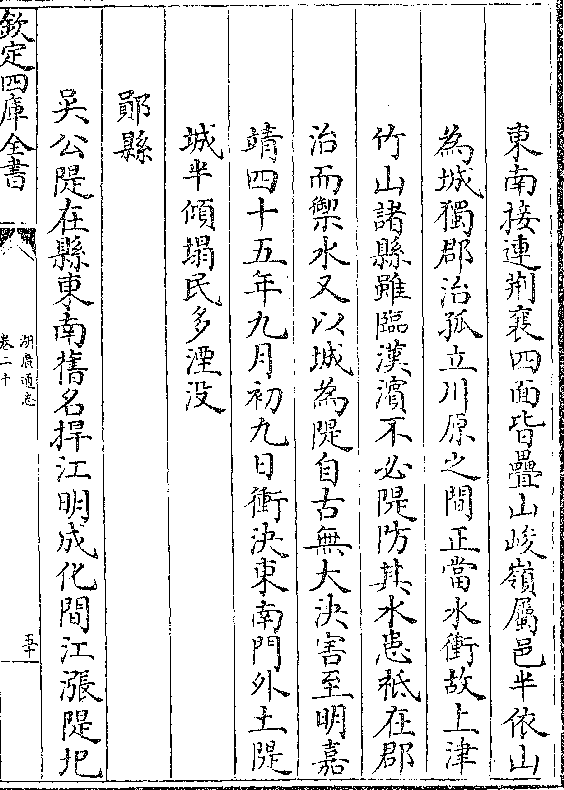 東南接連荆襄四面皆疊山峻嶺屬邑半依山
為城獨郡治孤立川原之間正當水衝故上津
竹山諸縣雖臨漢濱不必隄防其水患祗在郡
治而禦水又以城為隄自古無大決害至明嘉
靖四十五年九月初九日衝決東南門外土隄
城半傾塌民多湮没
鄖縣
吴公隄在縣東南舊名捍江明成化間江漲隄圯
欽定四庫全書
湖廣通志
卷二十